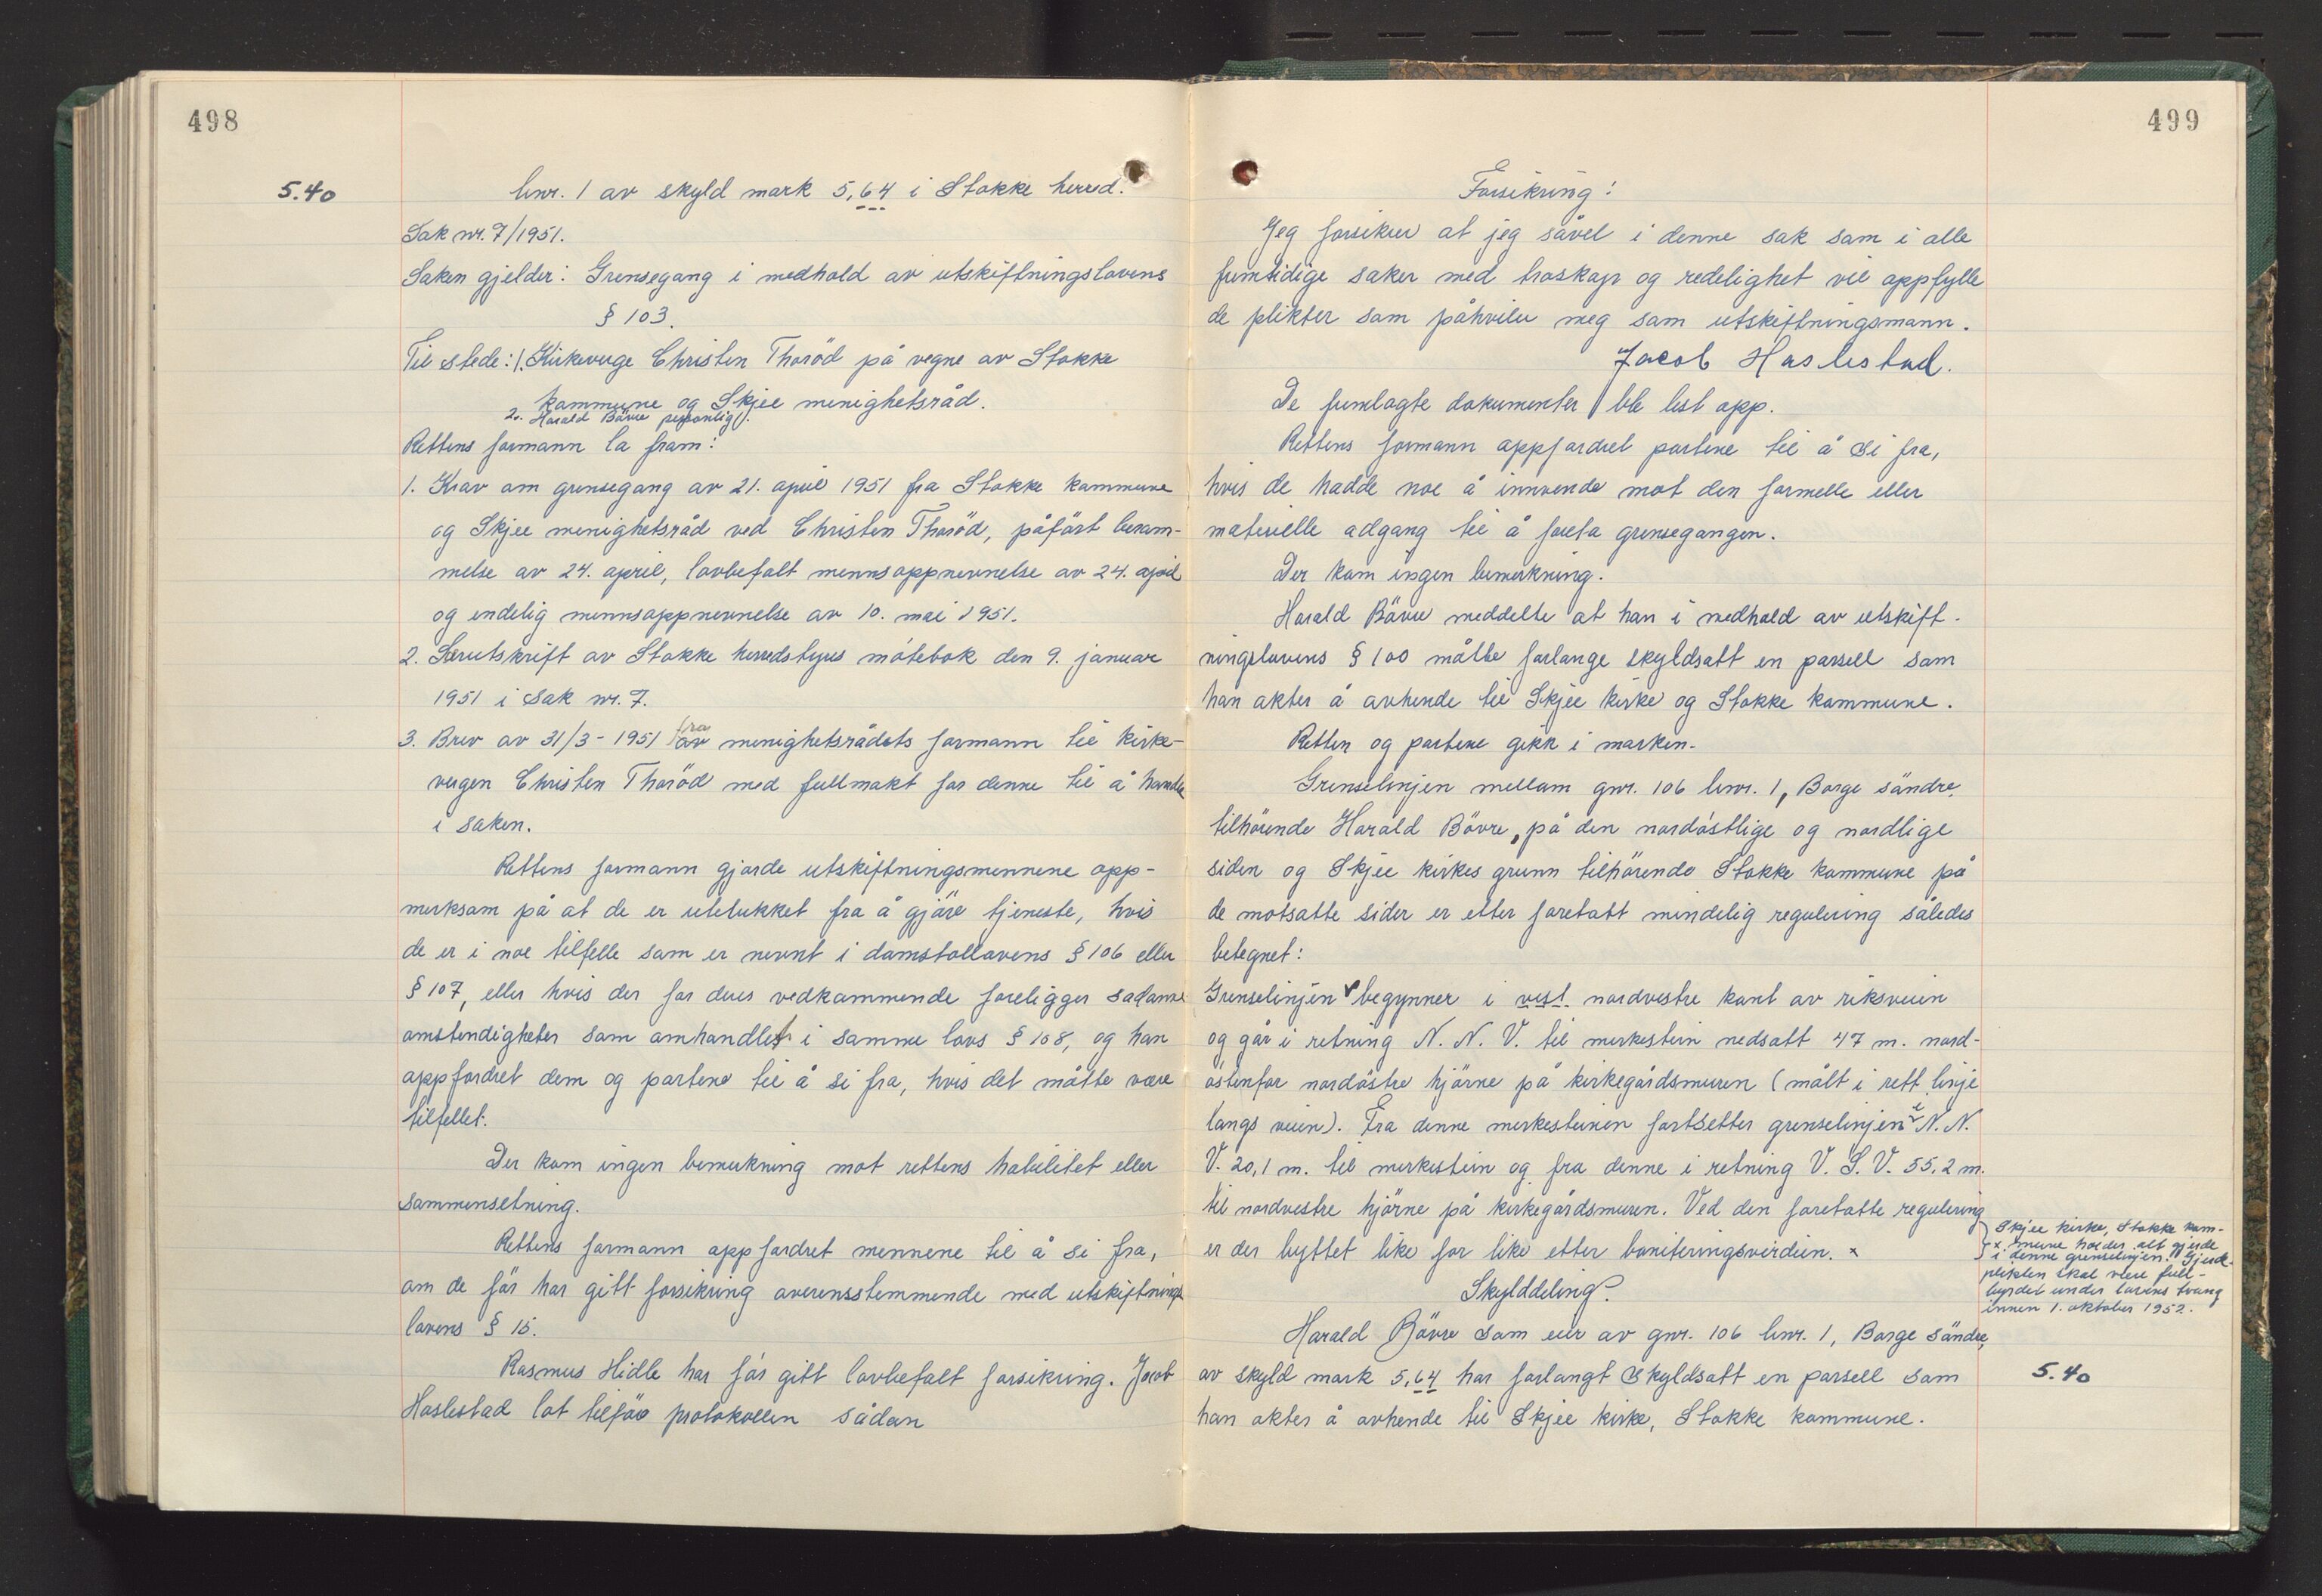 498
5.40
bnr. 1 av skyld mark 5,64 i Stokke herred.
Sak nr. 7/1951.
Saken gjelder: Grensegang i medhold av utskiftningslovens
§ 103.
Til stede: 1. Kirkeverge Christen Thoröd på vegne av Stokke
kommune og Skjee menighetsråd.
2. Harald Bövre personlig.
Rettens formann la fram:
1. Krav om grensegang av 21. april 1951 fra Stokke kommune
og Skjee menighetsråd ved Christen Thoröd, påfört beram-
melse av 24. april, lovbefalt mennsoppnevnelse av 24. april
og endelig mennsoppnevnelse av 10. mai 1951.
2. Særutskrift av Stokke herredstyres mötebok den 9. januar
1951 i sak nr. 7.
3. Brev av 31/3-1951 fra av menighetsrådets formann til kirke-
vergen Christen Thoröd med fullmakt for denne til å handle
i saken.
Rettens formann gjorde utskiftningsmennene opp-
merksom på at de er utelukket fra å gjöre tjeneste, hvis
de er i noe tilfelle som er nevnt i domstollovens § 106 eller
§ 107, eller hvis der for deres vedkommende foreligger sådanne
omstendigheter som omhandlet i samme lovs § 108, og han
oppfordret dem og partene til å si fra, hvis det måtte være
tilfellet.
Der kom ingen bemerkning mot rettens habilitet eller
sammensetning.
Rettens formann oppfordret mennene til å si fra,
om de för har gitt forsikring overensstemmende med utskiftnings
lovens § 15.
Rasmus Hidle har för gitt lovbefalt forsikring. Jacob
Haslestad lot tilföre protokollen sådan
499
Forsikring:
Jeg forsikrer at jeg såvel i denne sak som i alle
fremtidige saker med troskap og redelighet vil oppfylle
de plikter som påhviler meg som utskiftningsmann.
Jacob Haslestad.
De fremlagte dokumenter ble lest opp.
Rettens formann oppfordret partene til å si fra,
hvis de hadde noe å innvende mot den formelle eller
materielle adgang til å foreta grensegangen.
Der kom ingen bemerkning.
Harald Bövre meddelte at han i medhold av utskift-
ningslovens § 100 måtte forlange skyldsatt en parsell som
han akter å avhende til Skjee kirke og Stokke kommune.
Retten og partene gikk i marken.
Grenselinjen mellom gnr. 106 bnr. 1, Borge söndre,
tilhörende Harald Bövre, på den nordöstlige og nordlige
siden og Skjee kirkes grunn tilhörende Stokke kommune på
de motsatte sider er etter foretatt mindelig regulering således
betegnet:
Grenselinjen begynner i vest nordvestre kant av riksveien
og går i retning N. N. V. til merkestein nedsatt 47 m. nord-
östenfor nordöstre hjörne på kirkegårdsmuren (målt i rett linje
langs veien). Fra denne merkesteinen fortsetter grenselinjen i N. N.
V. 20,1 m. til merkestein og fra denne i retning V. S. V. 55,2 m.
til nordvestre hjörne på kirkegårdsmuren. Ved den foretatte regulering
er der byttet like for like etter boniteringsverdien. x
Skjee kirke, Stokke kom-
x mune holder alt gjerde
i denne grenselinjen. Gjerde-
plikten skal være full-
byrdet under lovens tvang
innen 1. oktober 1952.
Skylddeling.
Harald Bövre som eier av gnr. 106 bnr. 1, Borge söndre,
av skyld mark 5,64 har forlangt skyldsatt en parsell som
5.40
han akter å avhende til Skjee kirke, Stokke kommune.